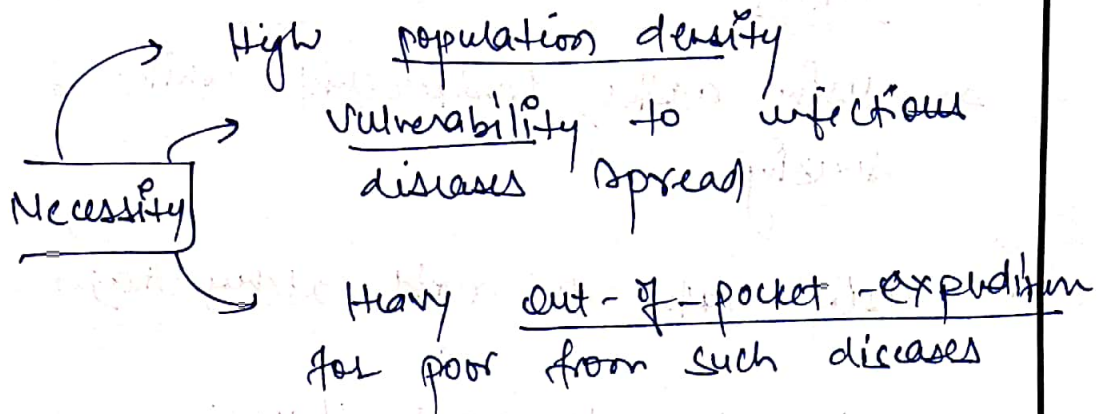 High population density
vulnerability to infectious
diseases spread
Necessity
Heavy out-of-pocket-expenditure
for poor from such diseases